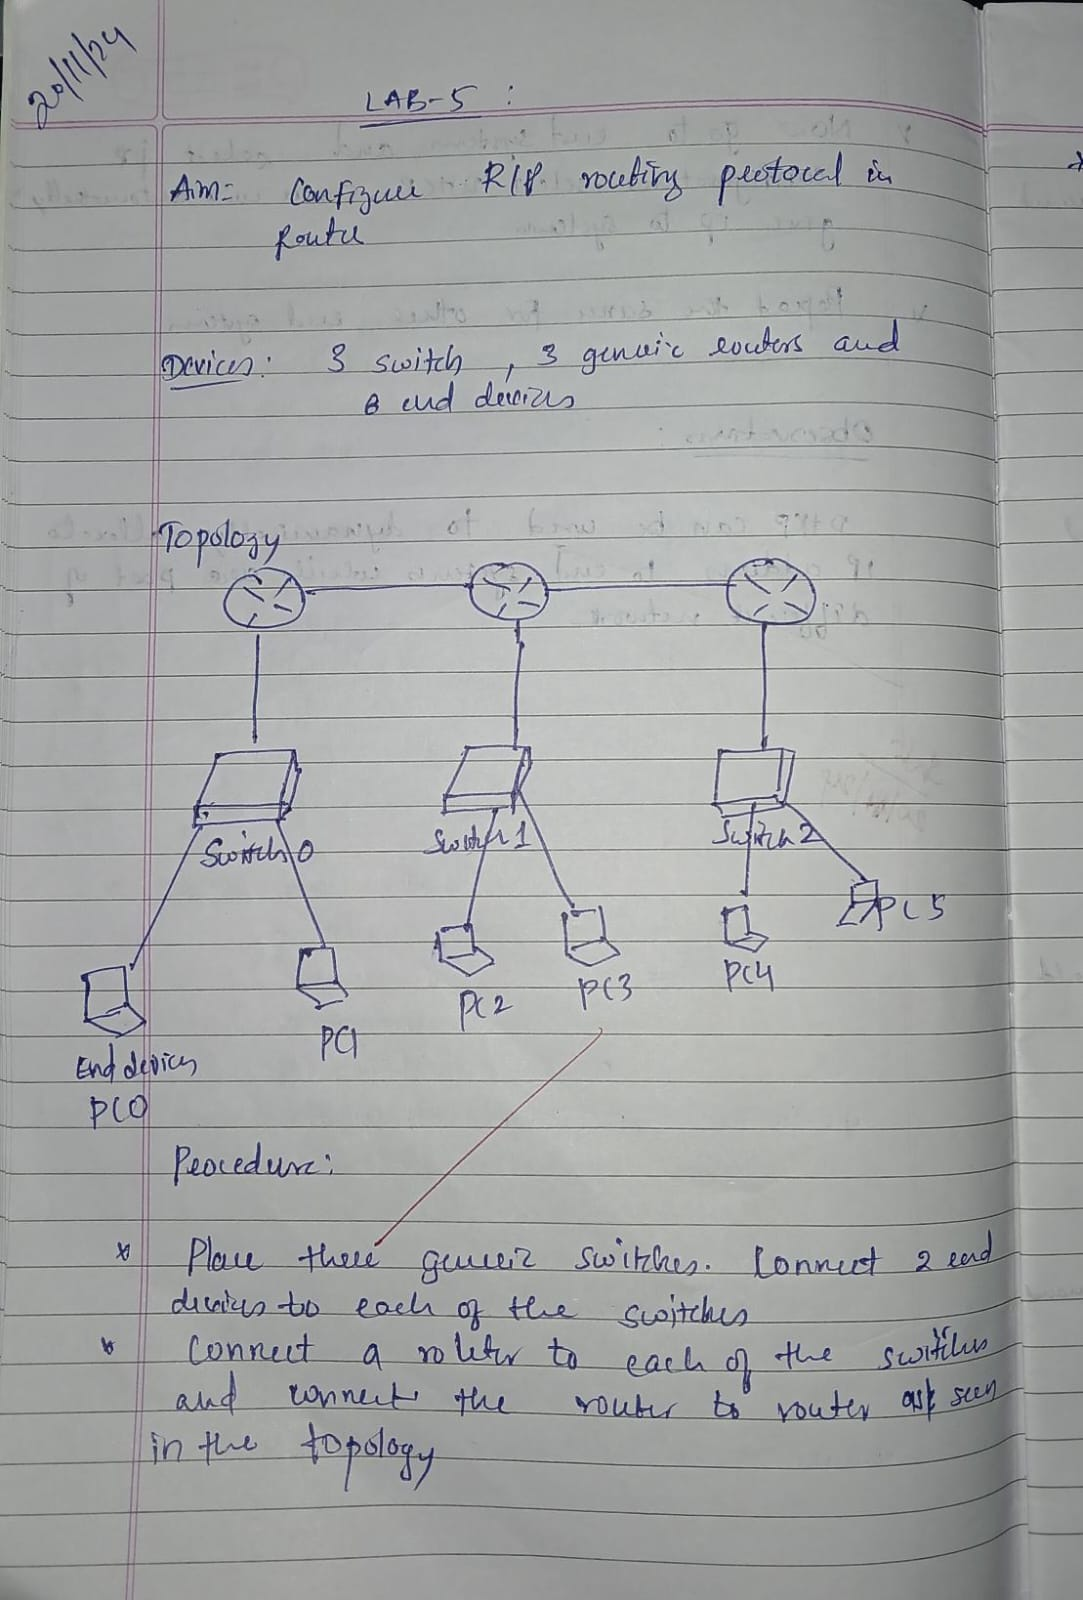 20/11/24
LAB-5 :
Aim= Configure RIP routing protocol in
Router
Devices: 3 switch, 3 generic routers and
6 end devices
Topology
Switch 0
Switch 1
Switch 2
PC5
PC4
PC3
PC2
PC1
End devices
PC0
Procedure:
* Place three generic switches. Connect 2 end
devices to each of the switches
* Connect a router to each of the switches
and connect the router to router as seen
in the topology